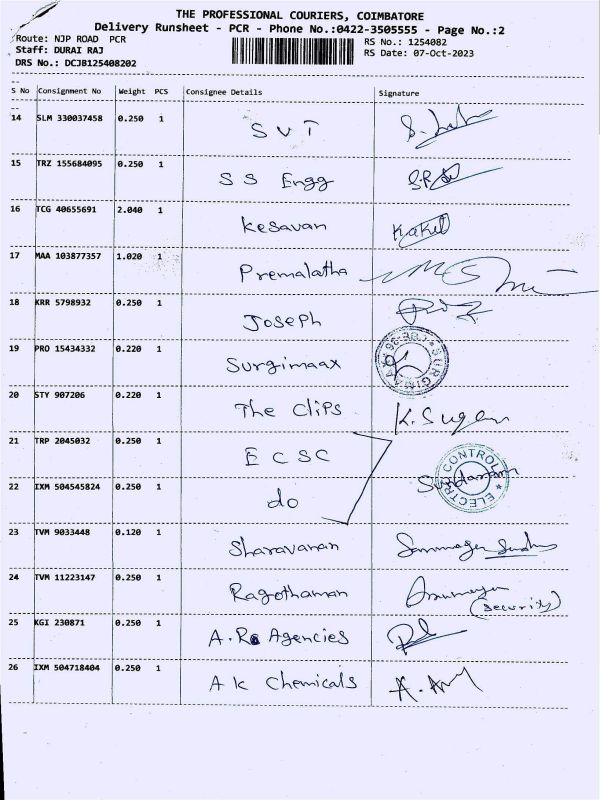 THE PROFESSIONAL COURIERS, COIMBATORE
Delivery Runsheet - PCR - Phone No.:0422-3505555 - Page No.:2
Route: NJP ROAD PCR
RS No.: 1254082
Staff: DURAI RAJ
RS Date: 07-Oct-2023
DRS No.: DCJB125408202
S No Consignment No Weight PCS Consignee Details Signature
14 SLM 330037458 0.250 1 SVT
15 TRZ 155684095 0.250 1 SS Engg
16 TCG 40655691 2.040 1 Kesavan
17 MAA 103877357 1.020 1 Premalatha
18 KRR 5798932 0.250 1 Joseph
19 PRO 15434332 0.220 1 Surgimaax
20 STY 907206 0.220 1 The Clips K. Sugan
21 TRP 2045032 0.250 1 ECSC
22 IXM 504545824 0.250 1 do Sundaram
23 TVM 9033448 0.120 1 Sharavanan
24 TVM 11223147 0.250 1 Ragothaman
(Security)
25 KGI 230871 0.250 1 A.R Agencies
26 IXM 504718404 0.250 1 AK Chemicals